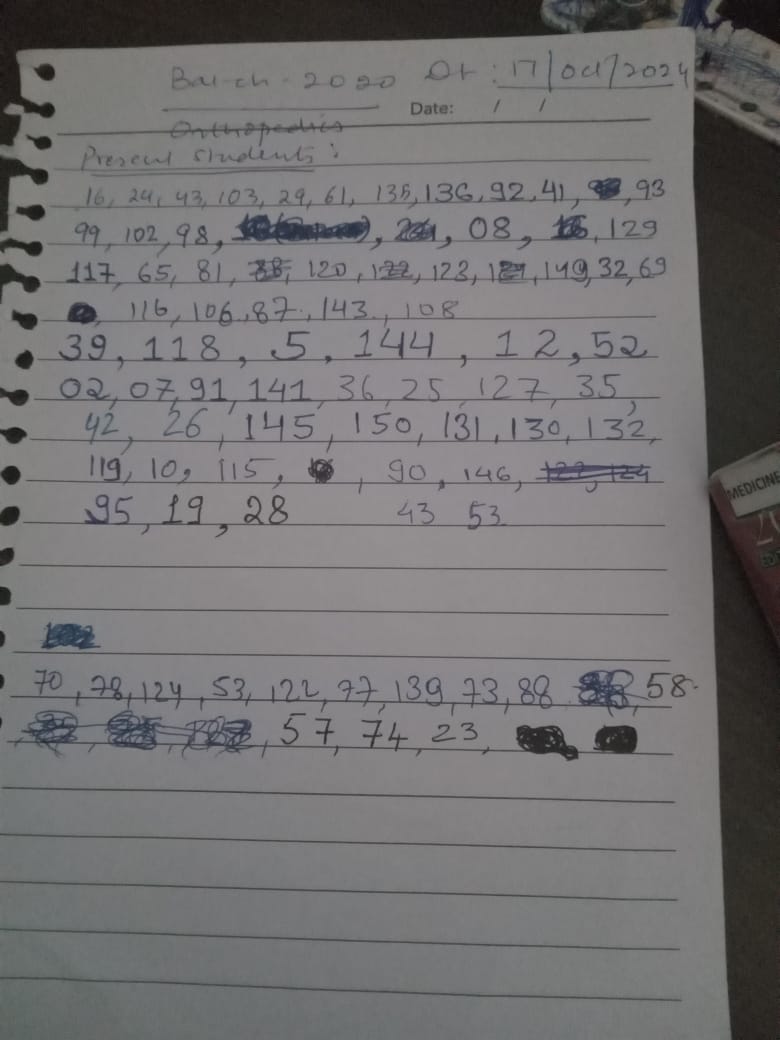 Batch - 2020 Dt : 17/Oct/2024
Date: / /
Orthopedics
Present students :
16, 24, 43, 103, 29, 61, 135, 136, 92, 41, 93
99, 102, 98, 08, 129
117, 65, 81, 120, 123, 149, 32, 69
116, 106, 87, 143, 108
39, 118, 5, 144, 12, 52
02, 07, 91, 141, 36, 25, 127, 35,
42, 26, 145, 150, 131, 130, 132,
119, 10, 115, , 90, 146, 122, 124
95, 19, 28 43 53
70, 78, 124, 53, 122, 77, 139, 73, 88 58
57, 74, 23,
MEDICINE